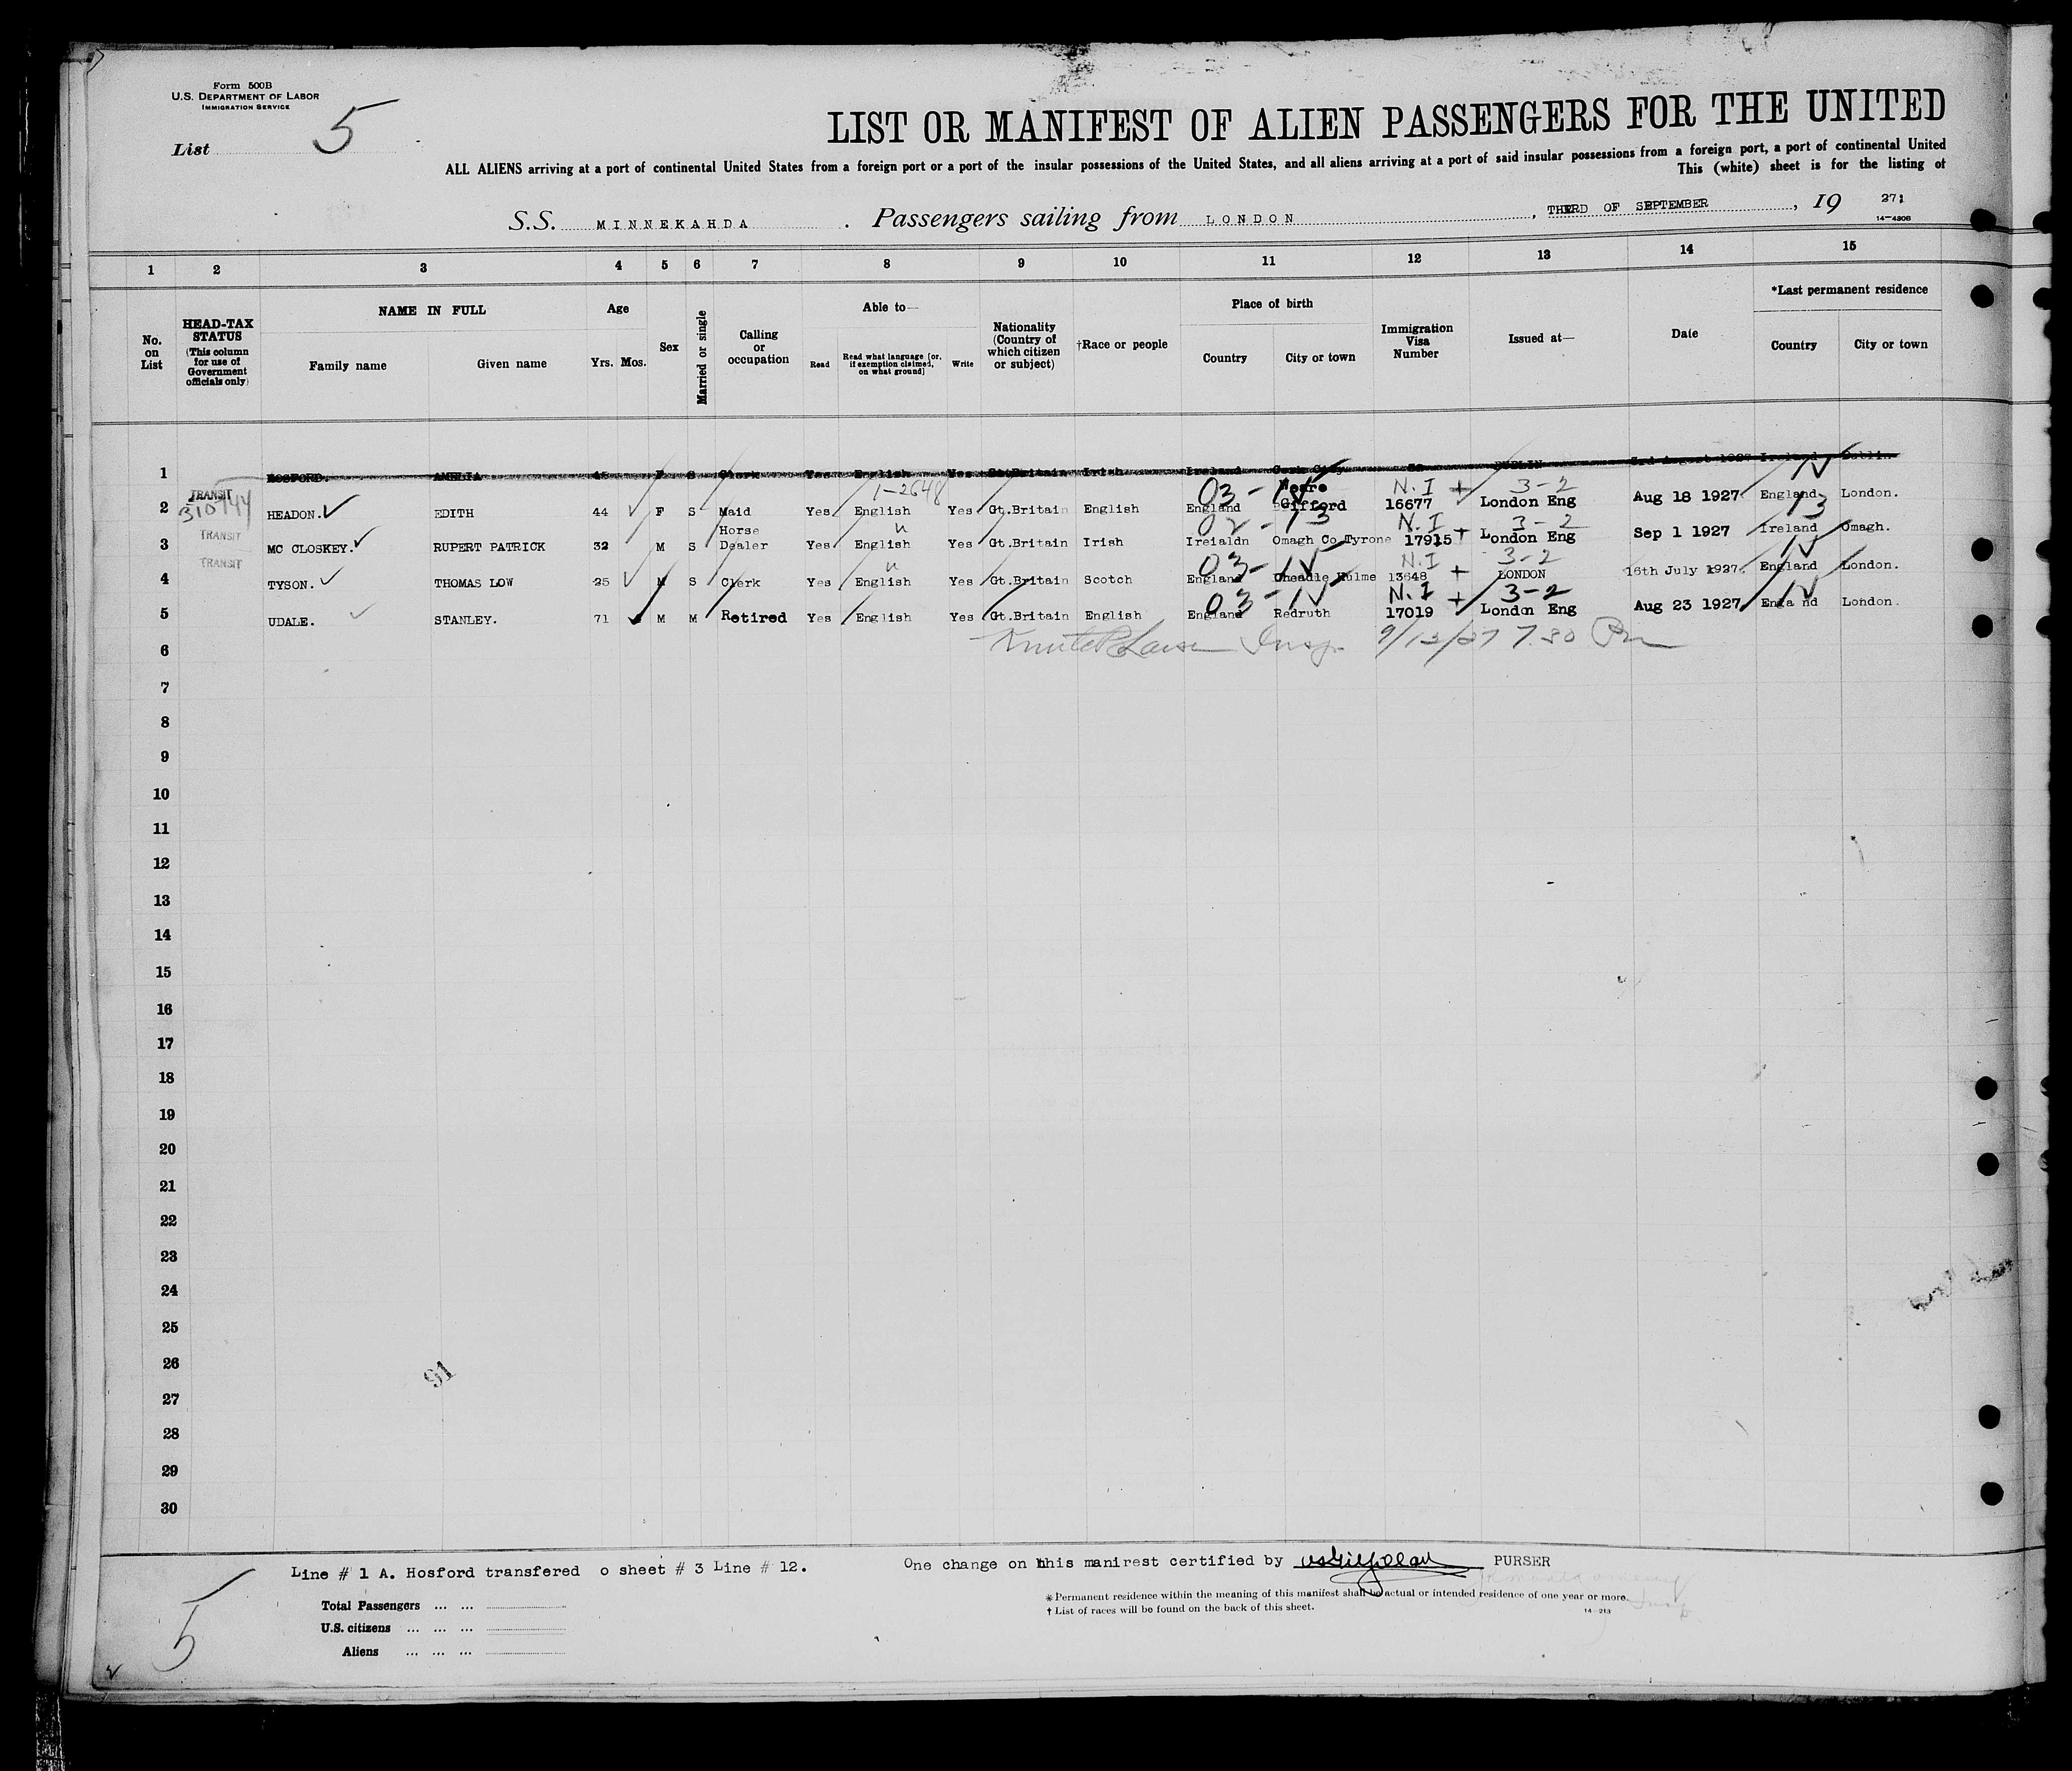 Form 500B
U.S. DEPARTMENT OF LABOR
IMMIGRATION SERVICE
List 5
LIST OR MANIFEST OF ALIEN PASSENGERS FOR THE UNITED
ALL ALIENS arriving at a port of continental United States from a foreign port or a port of the insular possessions of the United States, and all aliens arriving at a port of said insular possessions from a foreign port, a port of continental United
This (white) sheet is for the listing of
S.S. MINNEKAHDA. Passengers sailing from LONDON, THIRD OF SEPTEMBER, 19 27
14-4308
1 2 3 4 5 6 7 8 9 10 11 12 13 14 15
No. on List
HEAD-TAX STATUS (This column for use of Government officials only)
NAME IN FULL
Family name Given name
Age
Yrs. Mos.
Sex
Married or single
Calling or occupation
Able to—
Read Read what language [or, if exemption claimed, on what ground] Write
Nationality (Country of which citizen or subject)
†Race or people
Place of birth
Country City or town
Immigration Visa Number
Issued at—
Date
*Last permanent residence
Country City or town
1 HOSFORD. AMELIA 45 F S Clerk Yes English Yes Gt.Britain Irish Ireland Cork City DUBLIN 3rd August 1927 Ireland Dublin.
TRANSIT 310744 1-2648 03-IV Weare N.I + 3-2 IV
2 HEADON. EDITH 44 F S Maid Yes English Yes Gt.Britain English England Gifford 16677 London Eng Aug 18 1927 England London.
TRANSIT Horse " 02-13 N.I + 3-2 13
3 MC CLOSKEY. RUPERT PATRICK 32 M S Dealer Yes English Yes Gt.Britain Irish Ireialdn Omagh Co Tyrone 17915 London Eng Sep 1 1927 Ireland Omagh.
TRANSIT " 03-IV N.I + 3-2 IV
4 TYSON. THOMAS LOW 25 M S Clerk Yes English Yes Gt.Britain Scotch England Cheadle Hulme 13648 LONDON 16th July 1927. England London.
03-IV N.I + 3-2 IV
5 UDALE. STANLEY. 71 M M Retired Yes English Yes Gt.Britain English England Redruth 17019 London Eng Aug 23 1927 Enga nd London.
6 Insp. 9/12/27 7.30 Pm
7
8
9
10
11
12
13
14
15
16
17
18
19
20
21
22
23
24
25
26
91
27
28
29
30
Line # 1 A. Hosford transfered o sheet # 3 Line # 12. One change on this manirest certified by PURSER
Total Passengers ... ...
U.S. citizens ... ... ...
Aliens ... ... ...
* Permanent residence within the meaning of this manifest shall be actual or intended residence of one year or more.
† List of races will be found on the back of this sheet.
14-213
5